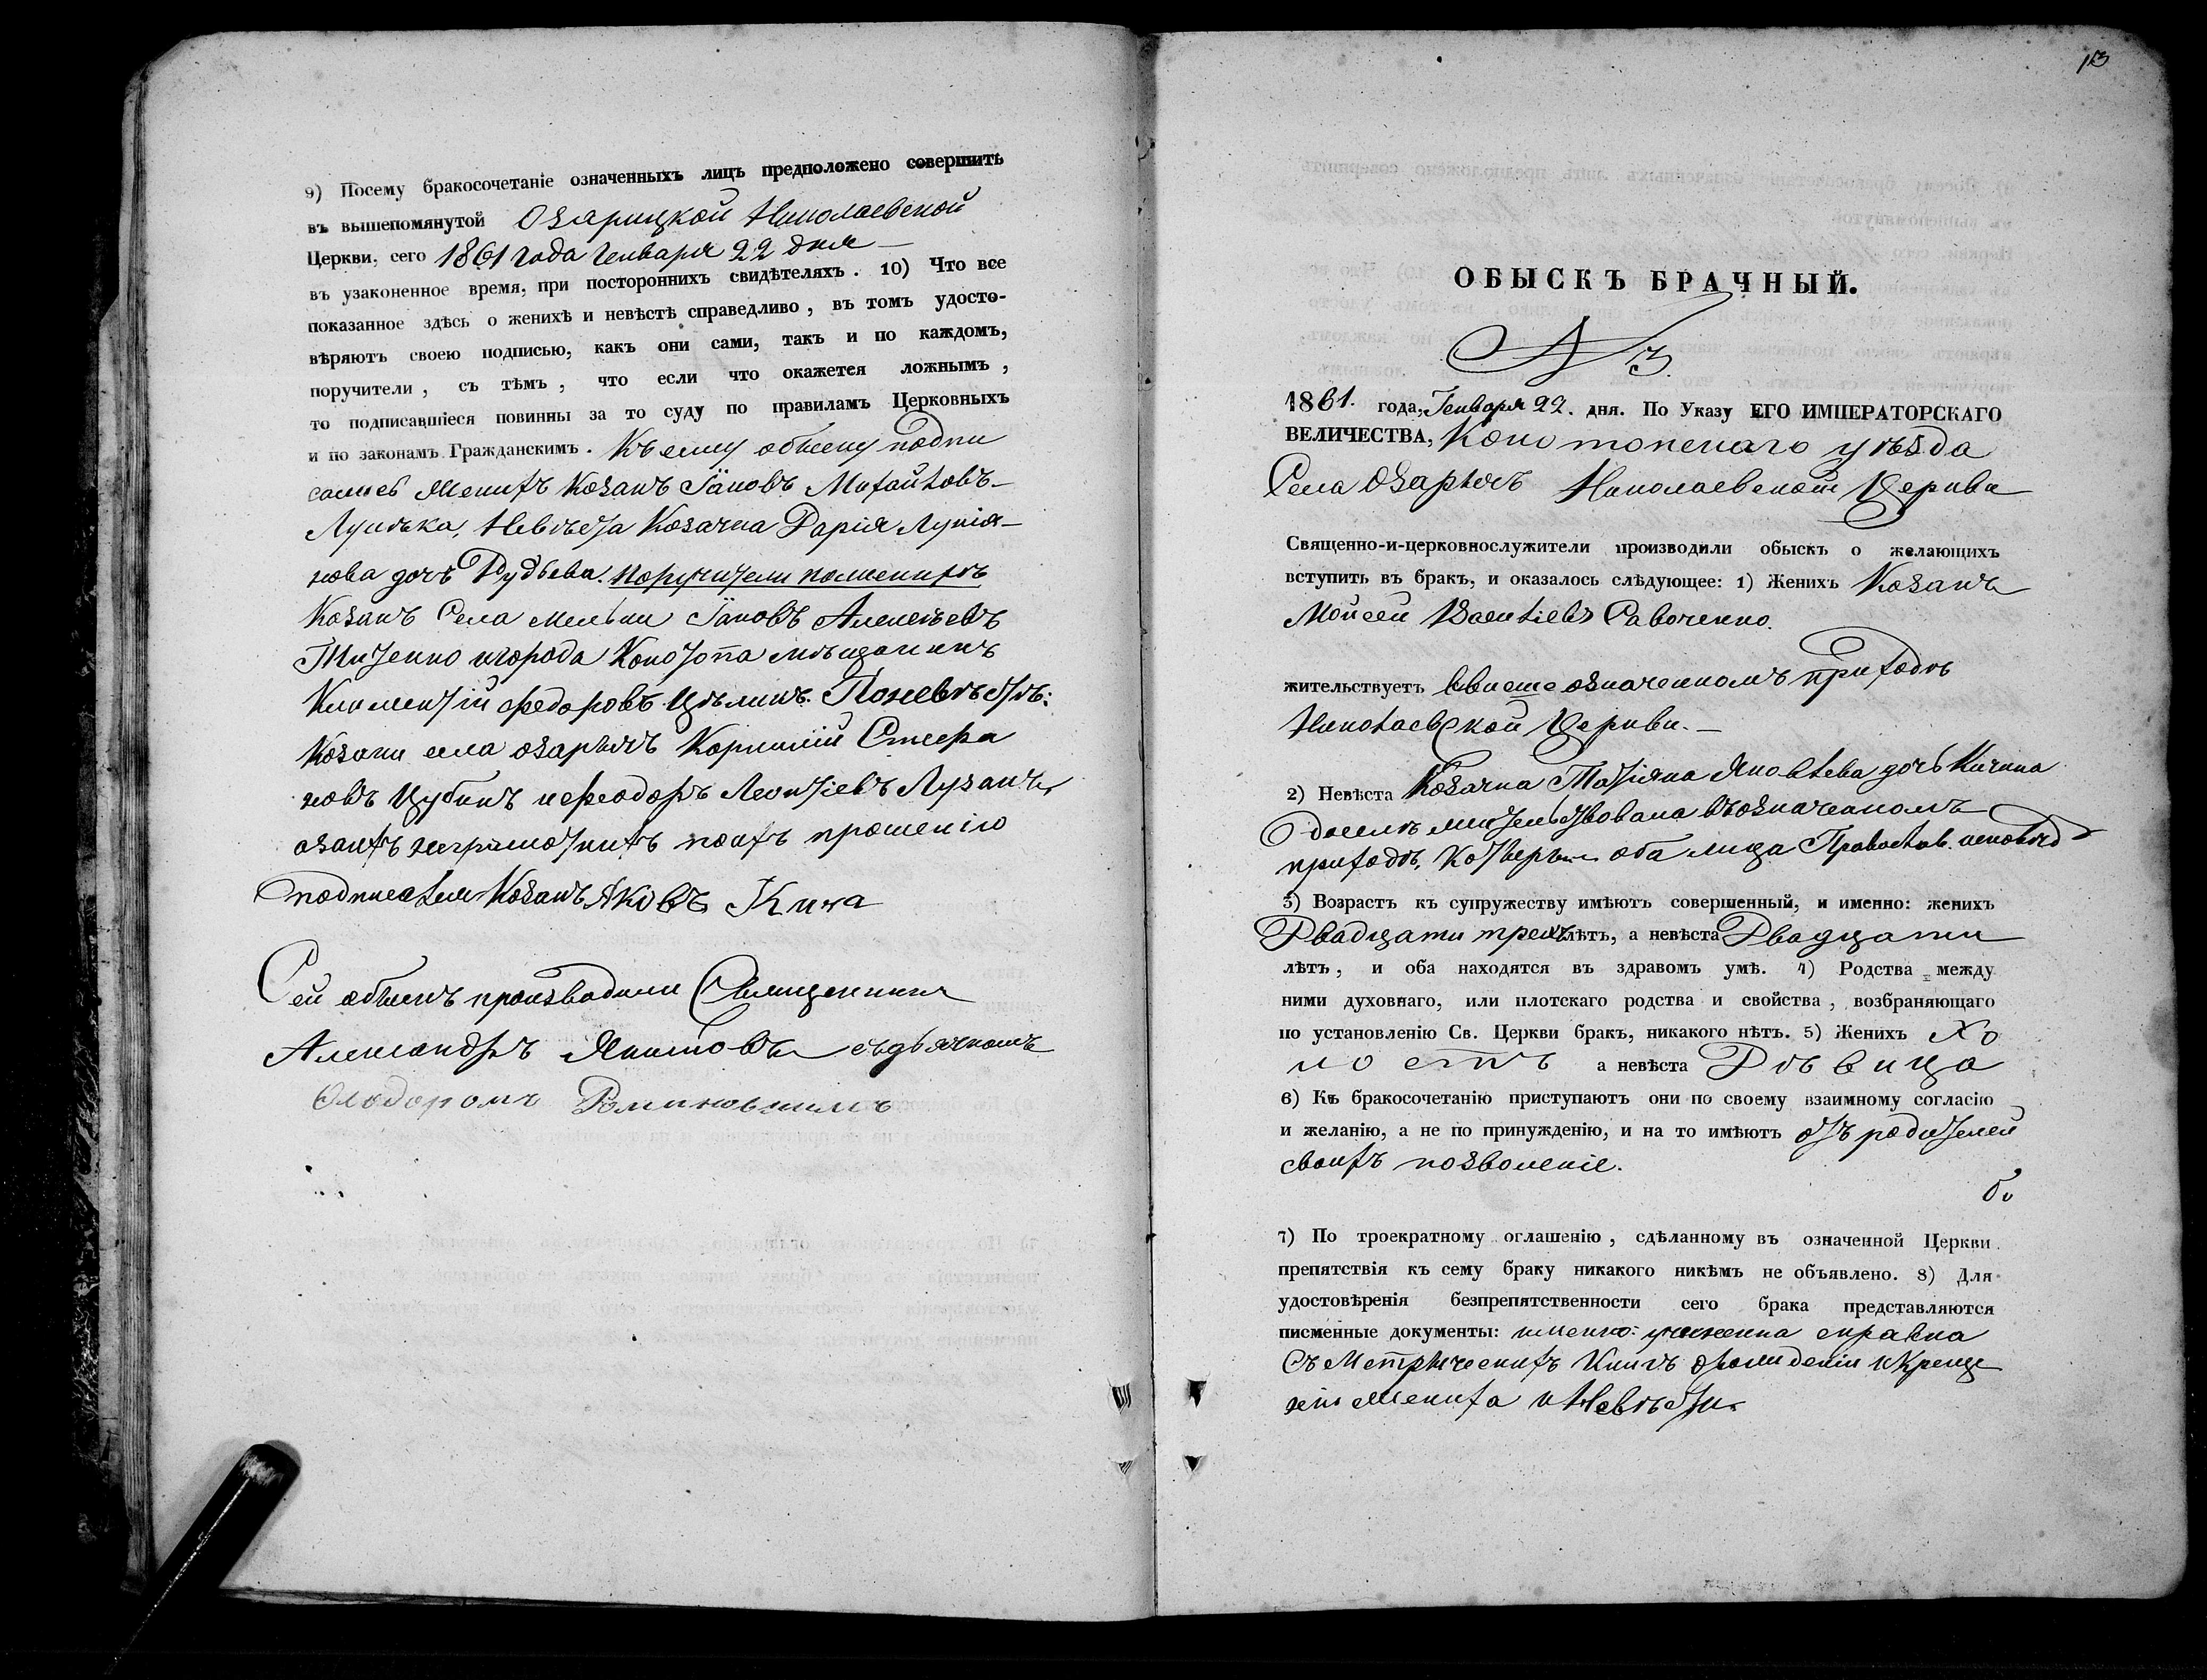 9) Посему бракосочетаніе означенныхъ лицъ предположено совершить
въ вышепомянутой Озарицкой Николаевской
Церкви, сего 1861 года Генваря 22 дня
въ узаконенное время, при постороннихъ свидѣтеляхъ. 10) Что все
показанное здѣсь о женихѣ и невѣстѣ справедливо, въ томъ удосто-
вѣряютъ своею подписью, какъ они сами, такъ и по каждомъ,
поручители, съ тѣмъ, что если что окажется ложнымъ,
то подписавшіеся повинны за то суду по правиламъ Церковныхъ
и по законамъ Гражданскимъ. Къ сему обыску подпи
сались Женихъ Козакъ Іаковъ Михайловъ
Луцька, Невѣста Козачка Дарія Лукія-
нова дочь Рудьева. поручители по женихѣ
Козакъ Села Мельни Іаковъ Алексѣевъ
Тищенко и города Конотопа мѣщанинъ
Климентій федоровъ Цѣликъ. По невѣстѣ:
Козаки села озаричъ Корнилій Стефа
новъ Цубинъ и феодоръ Леонтіевъ Лузанъ
а за ихъ неграмотныхъ по ихъ прошенію
подписался Козакъ Яковъ Кича
Сей обыскъ производили Священникъ
Александръ Якимовъ съ дьячкомъ
Феодоромъ
13
ОБЫСКЪ БРАЧНЫЙ.
№ 3.
1861. года, Генваря 22. дня. По Указу ЕГО ИМПЕРАТОРСКАГО
ВЕЛИЧЕСТВА, Конотопскаго уѣзда
Села Озаричъ Николаевской Церкви
Священно-и-церковнослужители производили обыскъ о желающихъ
вступить въ бракъ, и оказалось слѣдующее: 1) Женихъ Козакъ
Мойсей Васильевъ Савоченко.
жительствуетъ въ вышеозначенномъ приходѣ
Николаевской Церкви.
2) Невѣста Козачка Татіяна Яковлева дочь Кичина
доселѣ жительствовала въ означенномъ
приходѣ, оба лица Православ. исповѣд
3) Возрастъ къ супружеству имѣютъ совершенный, и именно: женихъ
Двадцати трехъ лѣтъ, а невѣста Двадцати
лѣтъ, и оба находятся въ здравомъ умѣ. 4) Родства между
ними духовнаго, или плотскаго родства и свойства, возбраняющаго
по установленію Св. Церкви бракъ, никакого нѣтъ. 5) Женихъ Хо
лостъ а невѣста Дѣвица
6) Къ бракосочетанію приступаютъ они по своему взаимному согласію
и желанію, а не по принужденію, и на то имѣютъ отъ родителей
своихъ позволеніе.
7) По троекратному оглашенію, сдѣланному въ означенной Церкви
препятствія къ сему браку никакого никѣмъ не объявлено. 8) Для
удостовѣренія безпрепятственности сего брака представляются
писменные документы: именно: учинена справка
съ Метрическихъ Книгъ о рождении и Креще
ніи Жениха и Невѣсты.